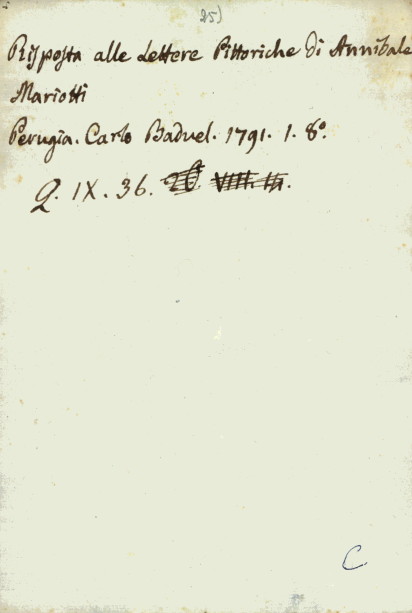 25)
Risposta alle Lettere Pittoriche di Annibale
Mariotti
Perugia. Carlo Baduel. 1791. 1. 8°.
Q. IX. 36.
C